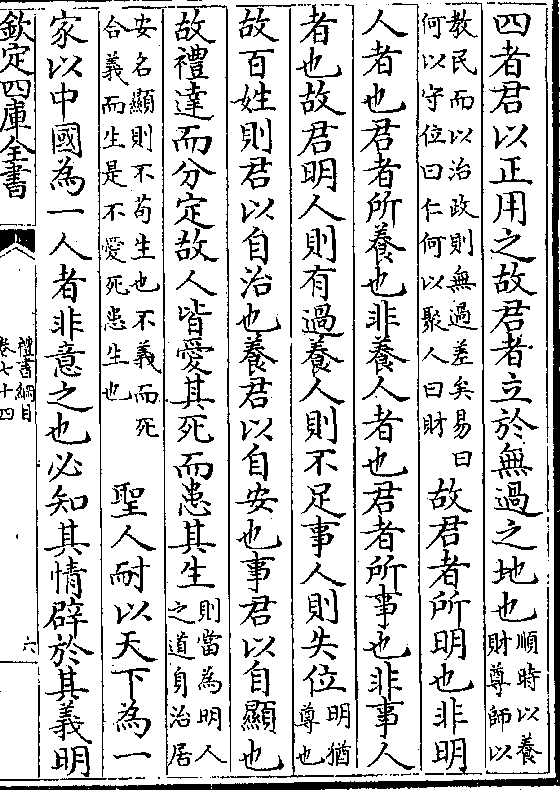 四者君以正用之故君者立於無過之地也順時以養
財尊師以
教民而以治政則無過差矣易曰
何以守位曰仁何以聚人曰財
故君者所明也非明
人者也君者所養也非養人者也君者所事也非事人
者也故君明人則有過養人則不足事人則失位明猶
尊也
故百姓則君以自治也養君以自安也事君以自顯也
故禮達而分定故人皆愛其死而患其生則當為明人
之道身治居
安名顯則不苟生也不義而死
合義而生是不愛死患生也
聖人耐以天下為一
家以中國為一人者非意之也必知其情辟於其義明
欽定四庫全書
禮書綱目
卷七十四
六